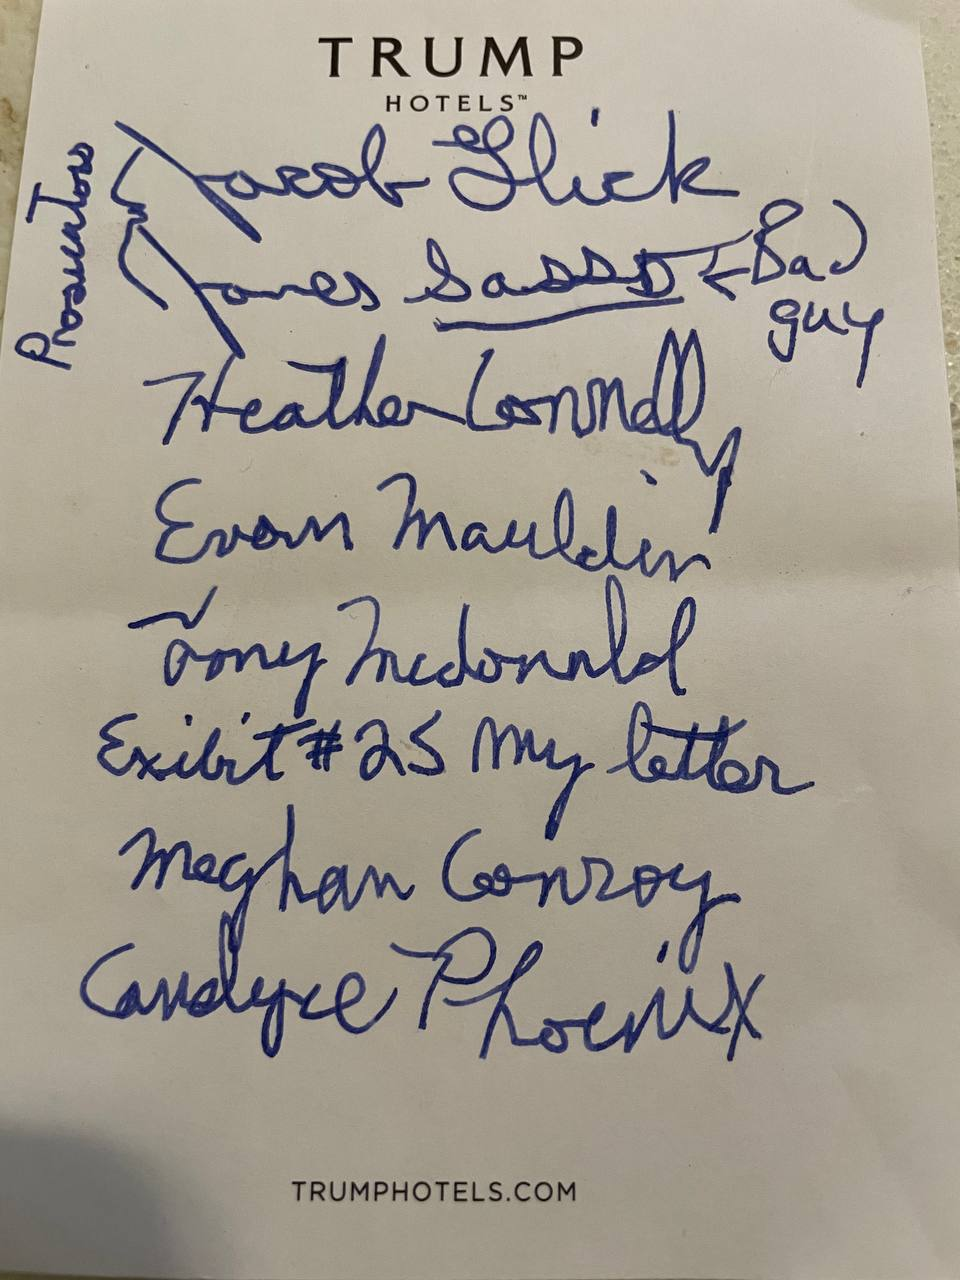 TRUMP
HOTELS™
Prosecutors
Jacob Glick
James Sasso ← Bad guy
Heather Connelly
Evan Mauldin
Tony Mcdonald
Exibit #25 My letter
Meghan Conroy
Candyce Phoenix
TRUMPHOTELS.COM